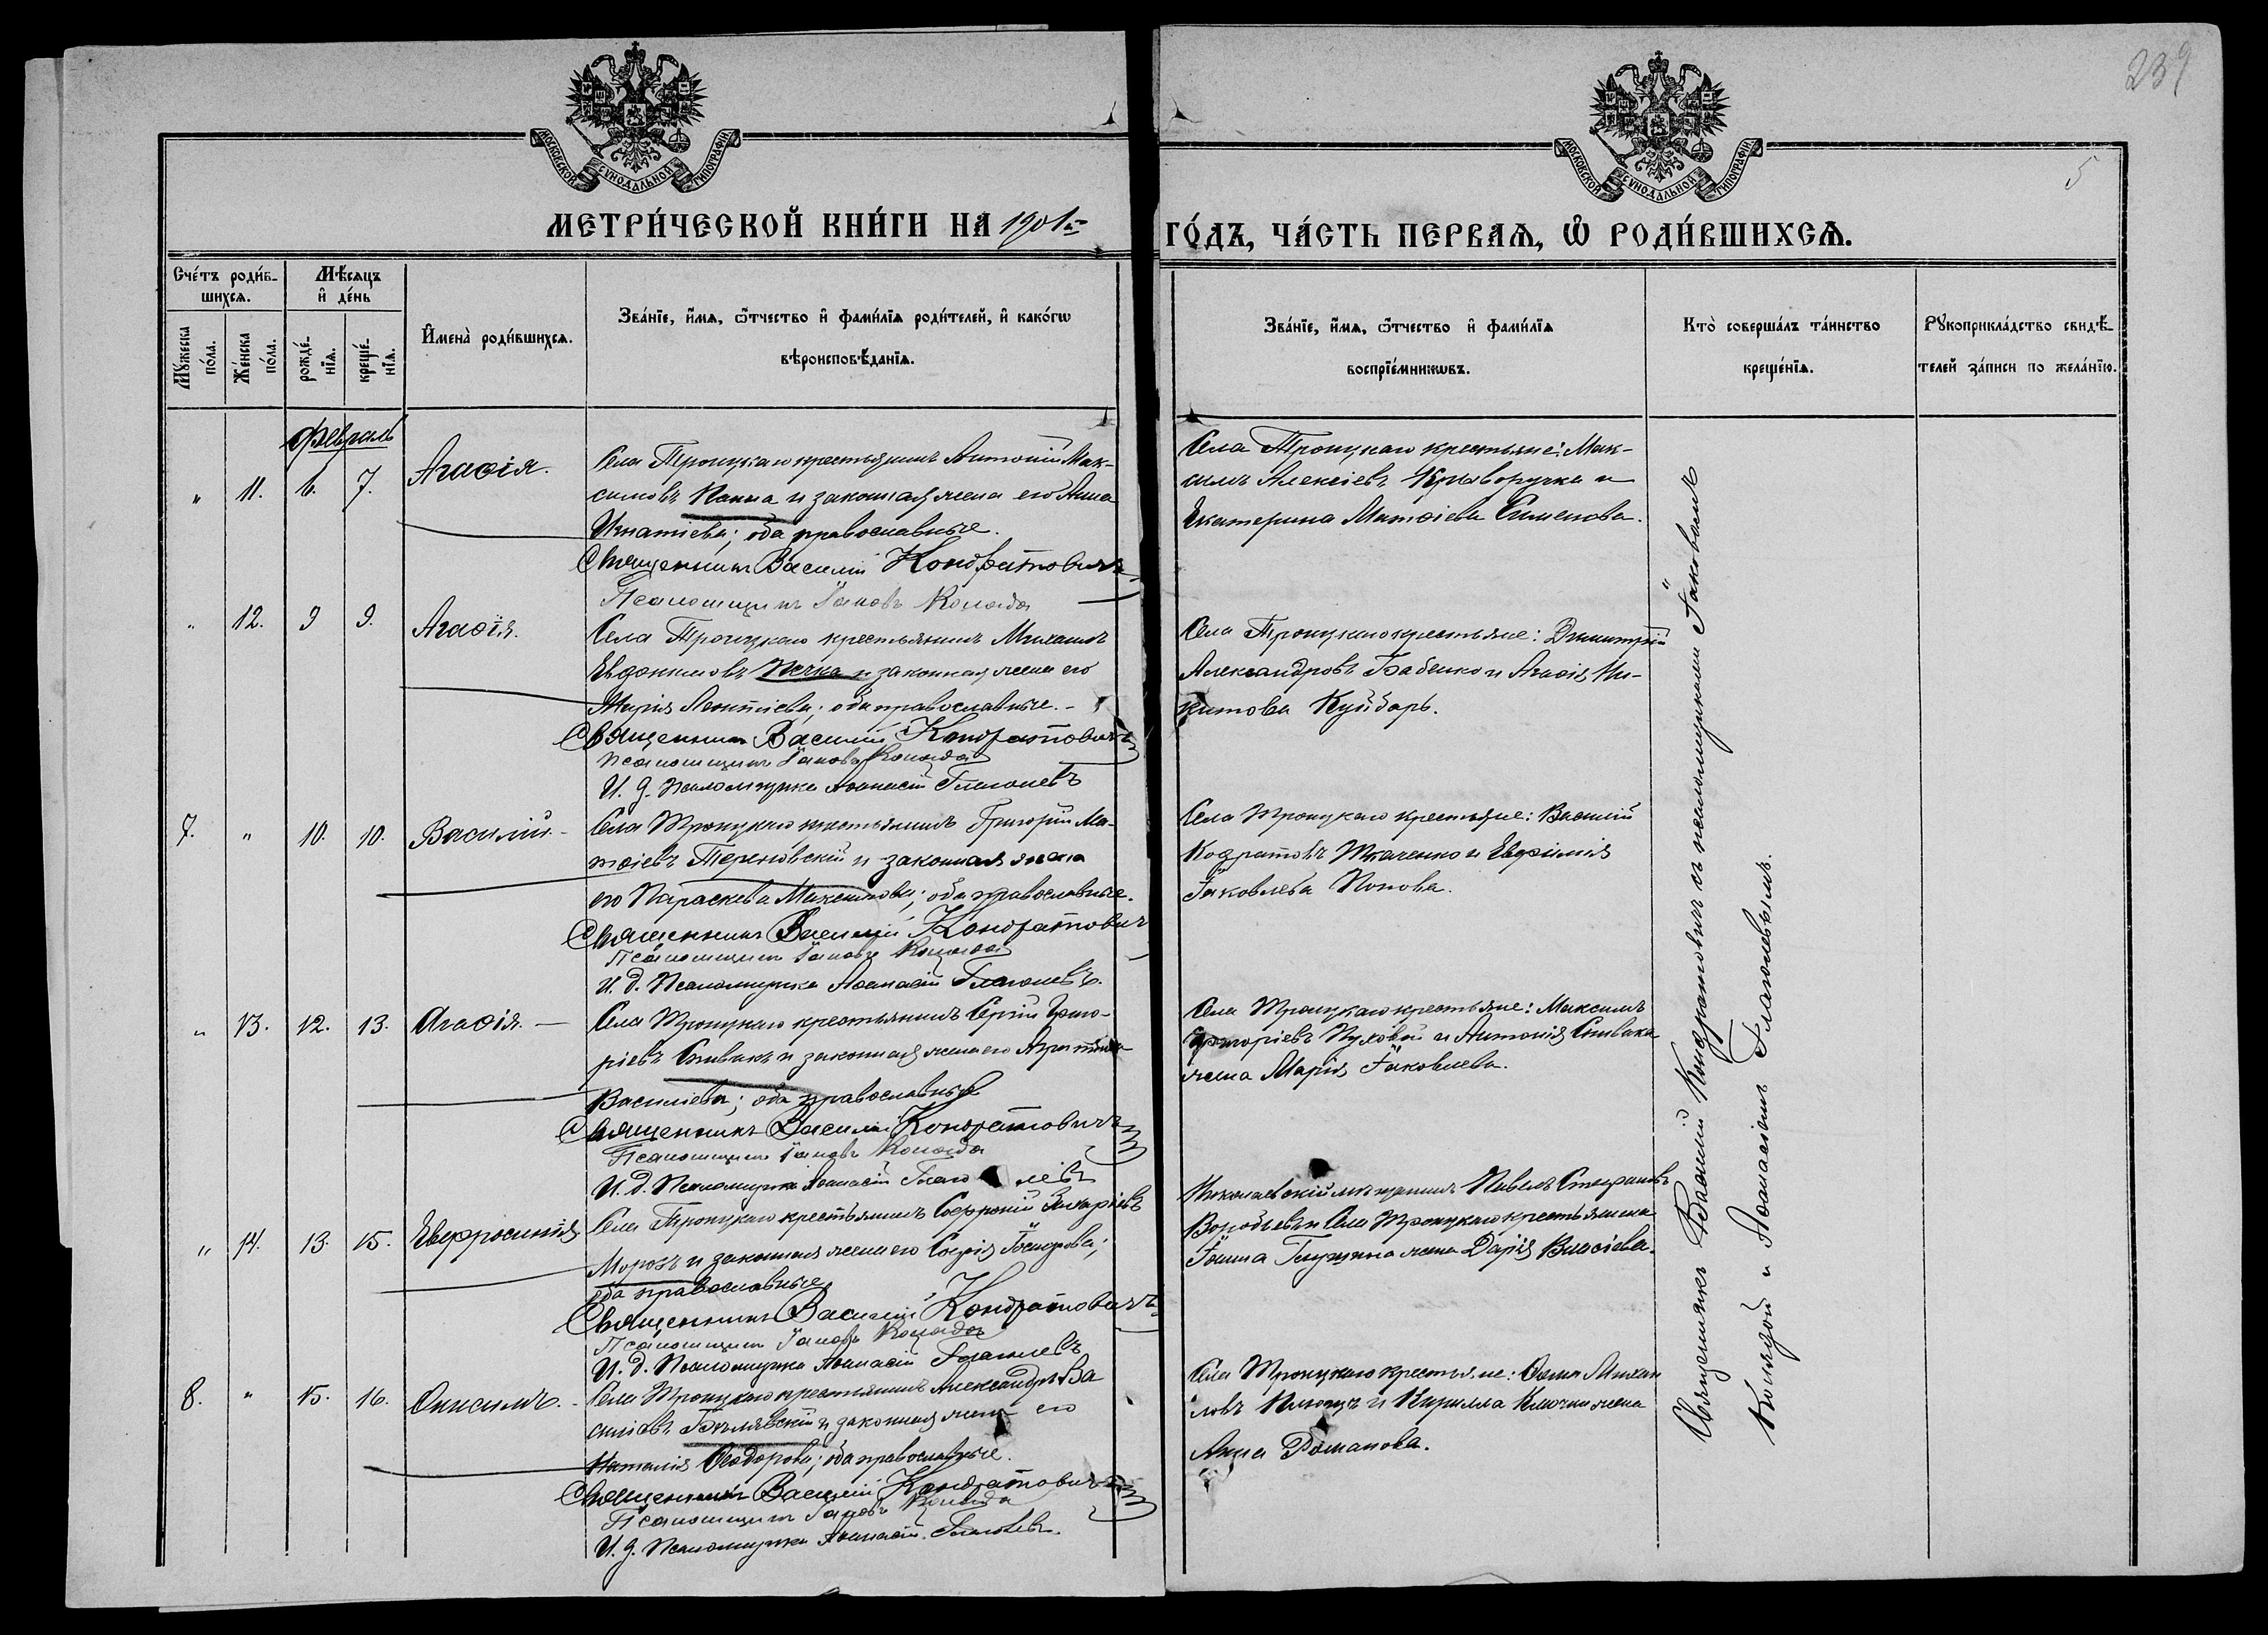 239
5
МОСКОВСКОЙ СУНОДАЛЬНОЙ ТИПОГРАФІИ
МОСКОВСКОЙ СУНОДАЛЬНОЙ ТИПОГРАФІИ
МЕТРИ́ЧЕСКОЙ КНИ́ГИ НА 1901й
ГО́ДЪ, ЧА́СТЬ ПЕРВАѦ, Ѡ РОДИ́ВШИХСѦ.
Сче́тъ роди́в-
шихсѧ.
Мѣсѧцъ
и҆ де́нь
Мꙋжеска
по́ла.
Же́нска
по́ла.
рожде́-
нїѧ.
креще́-
нїѧ.
И҆мена̀ роди́вшихсѧ.
Зва́нїе, и҆́мѧ, ѻ҆́тчество и҆ фами́лїѧ роди́телей, и҆ како́гѡ
вѣроисповѣ́данїѧ.
Зва́нїе, и҆́мѧ, ѻ҆́тчество и҆ фами́лїѧ
воспрїе́мникѡвъ.
Кто̀ соверша́лъ та́инство
креще́нїѧ.
Рꙋкоприкла́дство свидѣ́-
телей за́писи по жела́нїю.
Февраль
" 11. 6. 7. Агаѳія.
Села Троицкаго крестьянинъ Антоній Мак-
симовъ Папка и законная жена его Анна
Игнатіева; оба православные.
Священникъ Василій Кондратовичъ
Псаломщикъ Іаковъ Коляда
Села Троицкаго крестьяне: Мак-
симъ Алексіевъ Криворучка и
Екатерина Матѳіева Сименова.
" 12. 9 9. Агаѳія.
Села Троицкаго крестьянинъ Михаилъ
Евдокимовъ Печка и законная жена его
Марія Леонтіева; оба православные. -
Священникъ Василій Кондратовичъ
Псаломщикъ Іаковъ Коляда
И. д. псаломщика Аѳанасій Глаголевъ
Села Троицкаго крестьяне: Димитрій
Александровъ Бабенко и Агаѳія Ни-
китова Куйбарь.
7. " 10. 10. Василій. -
Села Троицкаго крестьянинъ Григорій Ма-
тѳіевъ Терновскій и законная жена
его Параскева Максимова; оба православные.
Священникъ Василій Кондратовичъ
Псаломщикъ Іаковъ Коляда
И. д. Псаломщика Аѳанасій Глаголевъ.
Села Троицкаго крестьяне: Василій
Кодратовъ Ткаченко и Евфимія
Іаковлева Попова.
" 13. 12. 13. Агаѳія. -
Села Троицкаго крестьянинъ Сергій Григо-
ріевъ Спивакъ и законная жена его Агриппина
Василіева; оба православные
Священникъ Василій Кондратовичъ
Псаломщикъ Іаковъ Коляда
И. д. Псаломщика Аѳанасій Глаголевъ
Села Троицкаго крестьяне: Максимъ
Григоріевъ Пуховой и Антонія Спивака
жена Марія Іаковлева.
" 14. 13. 15. Евфросинія
Села Троицкаго крестьянинъ Софроній Захаріевъ
Морозъ и законная жена его Софія Ѳеодорова;
оба православные
Священникъ Василій Кондратовичъ
Псаломщикъ Іаковъ Коляда
И. д. Псаломщика Аѳанасій Глаголевъ
Николаевскій мѣщанинъ Павелъ Стефановъ
Воробьевъ и Села Троицкаго крестьянина
Іоанна жена Дарія Власіева.
8. " 15. 16. Онисимъ. -
Села Троицкаго крестьянинъ Александръ Ва
силіевъ Бѣлявскій и законная жена его
Наталія Ѳеодорова; оба православные.
Священникъ Василій Кондратовичъ
Псаломщикъ Іаковъ Коляда
И. д. Псаломщика Аѳанасій Глаголевъ.
Села Троицкаго крестьяне: Ѳома Михаи
ловъ и Кирилла жена
Анна Романова.
Священникъ Василій Кондратовичъ съ псаломщиками Іаковомъ
Колядой и Аѳанасіемъ Глаголевымъ.